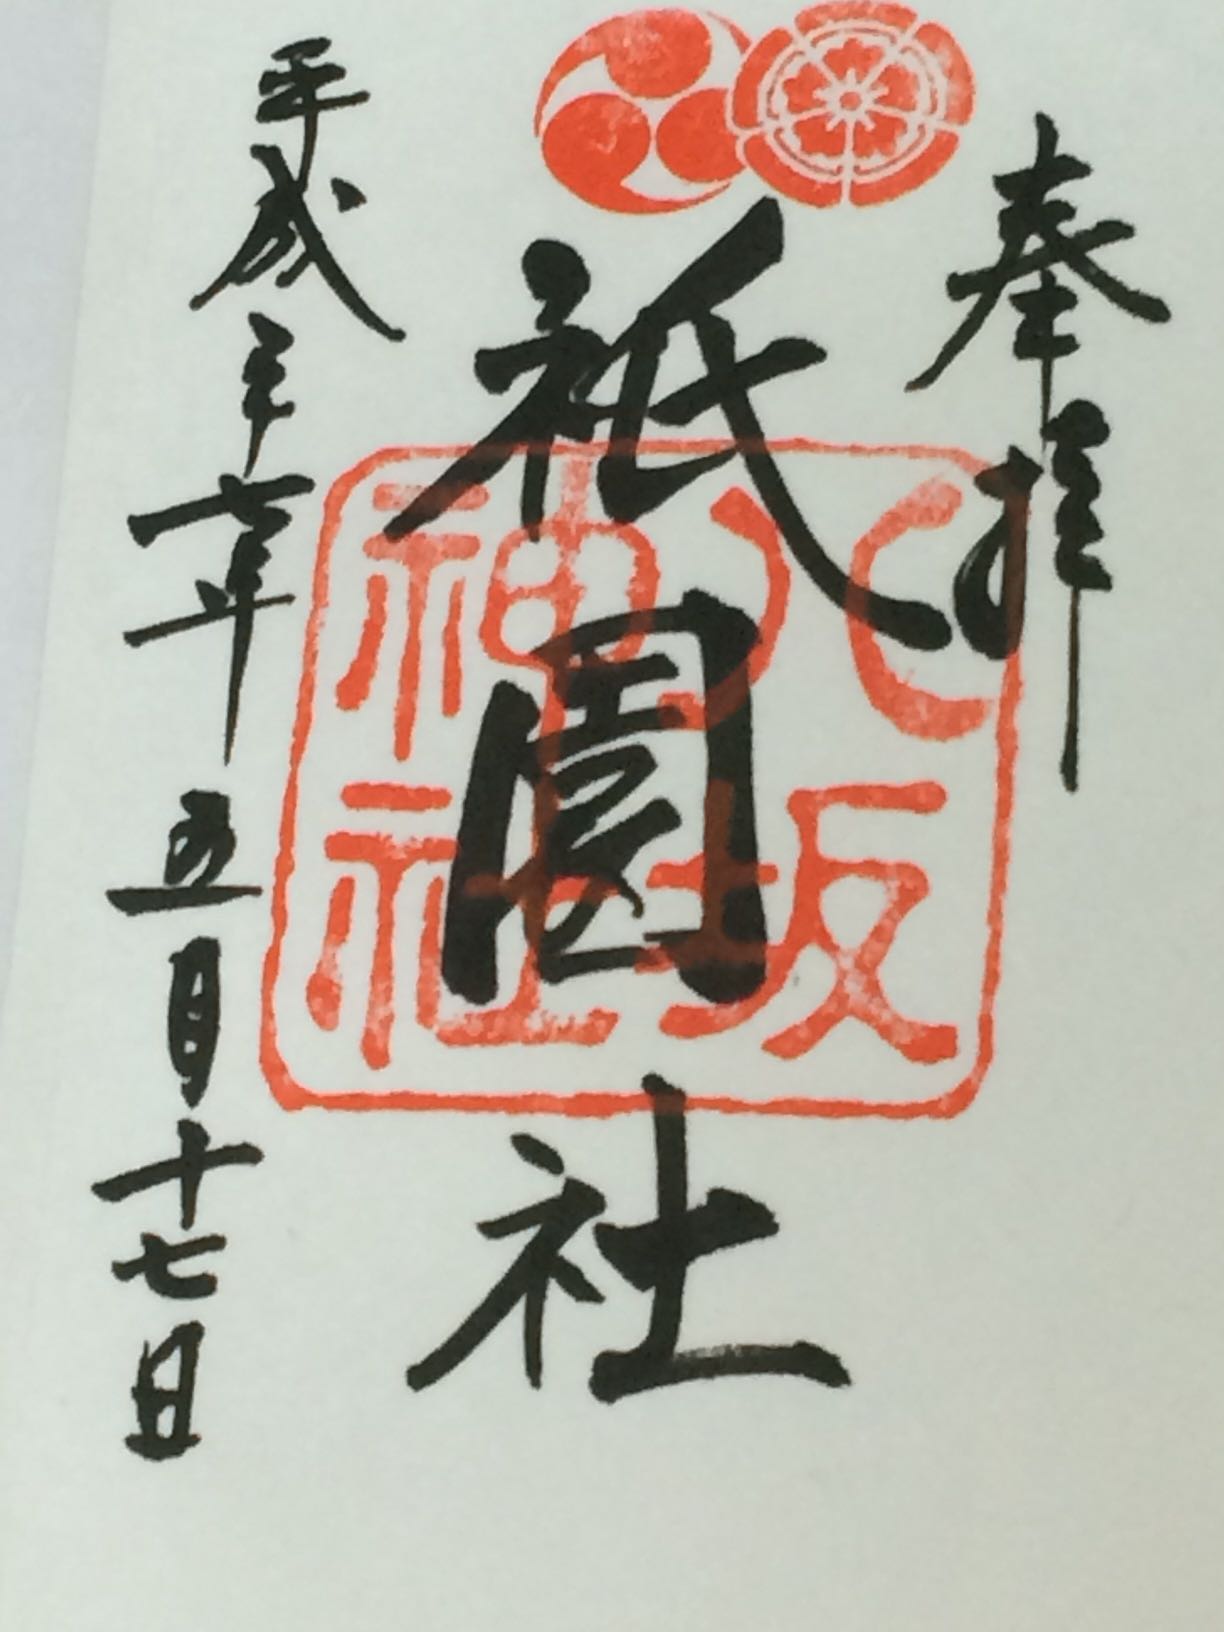 奉拝
祇園社
八坂神社
平成二十七年五月十七日